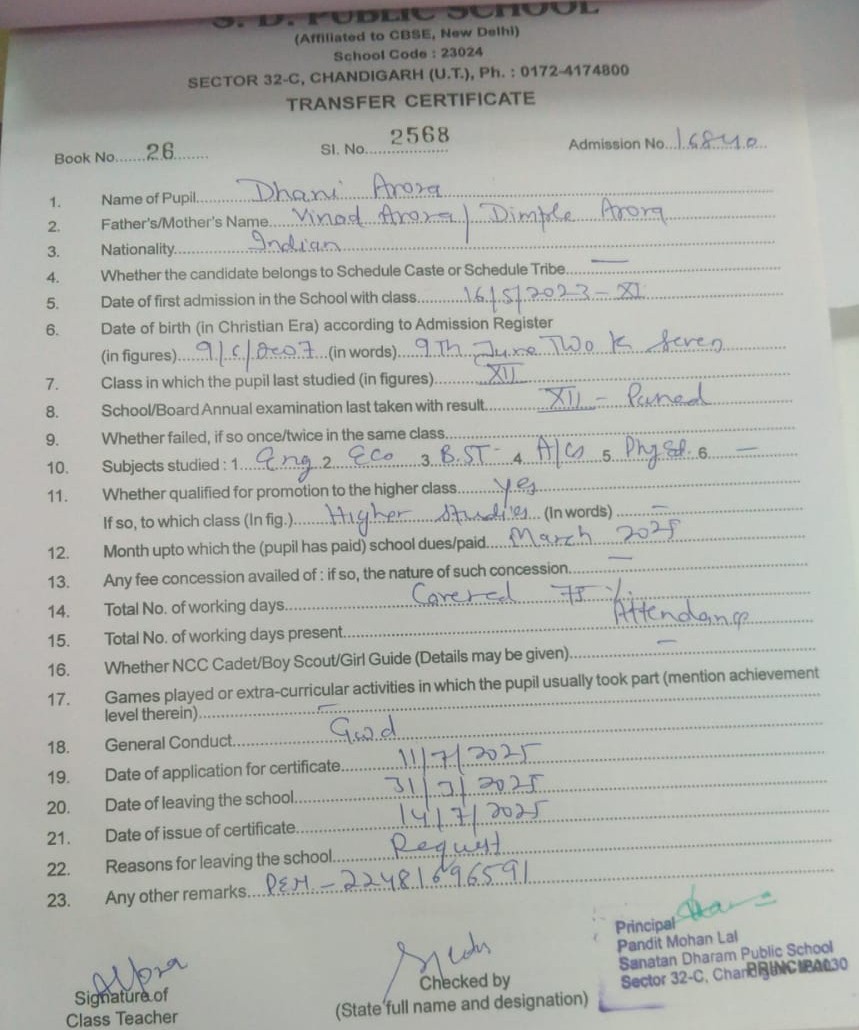 S. D. PUBLIC SCHOOL
(Affiliated to CBSE, New Delhi)
School Code : 23024
SECTOR 32-C, CHANDIGARH (U.T.), Ph. : 0172-4174800
TRANSFER CERTIFICATE
Book No....... 26 ........ Sl. No. 2568 Admission No. 16840
1. Name of Pupil Dhani Arora
2. Father's/Mother's Name Vinod Arora / Dimple Arora
3. Nationality Indian
4. Whether the candidate belongs to Schedule Caste or Schedule Tribe —
5. Date of first admission in the School with class 16/5/2023 - XI
6. Date of birth (in Christian Era) according to Admission Register
(in figures) 9/6/2007 (in words) 9Th June Two K Seven
7. Class in which the pupil last studied (in figures) XII
8. School/Board Annual examination last taken with result XII - Passed
9. Whether failed, if so once/twice in the same class
10. Subjects studied : 1. Eng 2. Eco 3. B.ST 4. A/Cs 5. Phy Ed. 6. —
11. Whether qualified for promotion to the higher class Yes
If so, to which class (In fig.) Higher Studies (In words) —
12. Month upto which the (pupil has paid) school dues/paid March 2025
13. Any fee concession availed of : if so, the nature of such concession —
14. Total No. of working days Covered 75 %
15. Total No. of working days present Attendance
16. Whether NCC Cadet/Boy Scout/Girl Guide (Details may be given) —
17. Games played or extra-curricular activities in which the pupil usually took part (mention achievement
level therein) —
18. General Conduct Good
19. Date of application for certificate 11/7/2025
20. Date of leaving the school 31/3/2025
21. Date of issue of certificate 14/7/2025
22. Reasons for leaving the school Request
23. Any other remarks PEN - 22481696591
Signature of
Class Teacher
Checked by
(State full name and designation)
Principal
Pandit Mohan Lal
Sanatan Dharam Public School
Sector 32-C,
PRINCIPAL